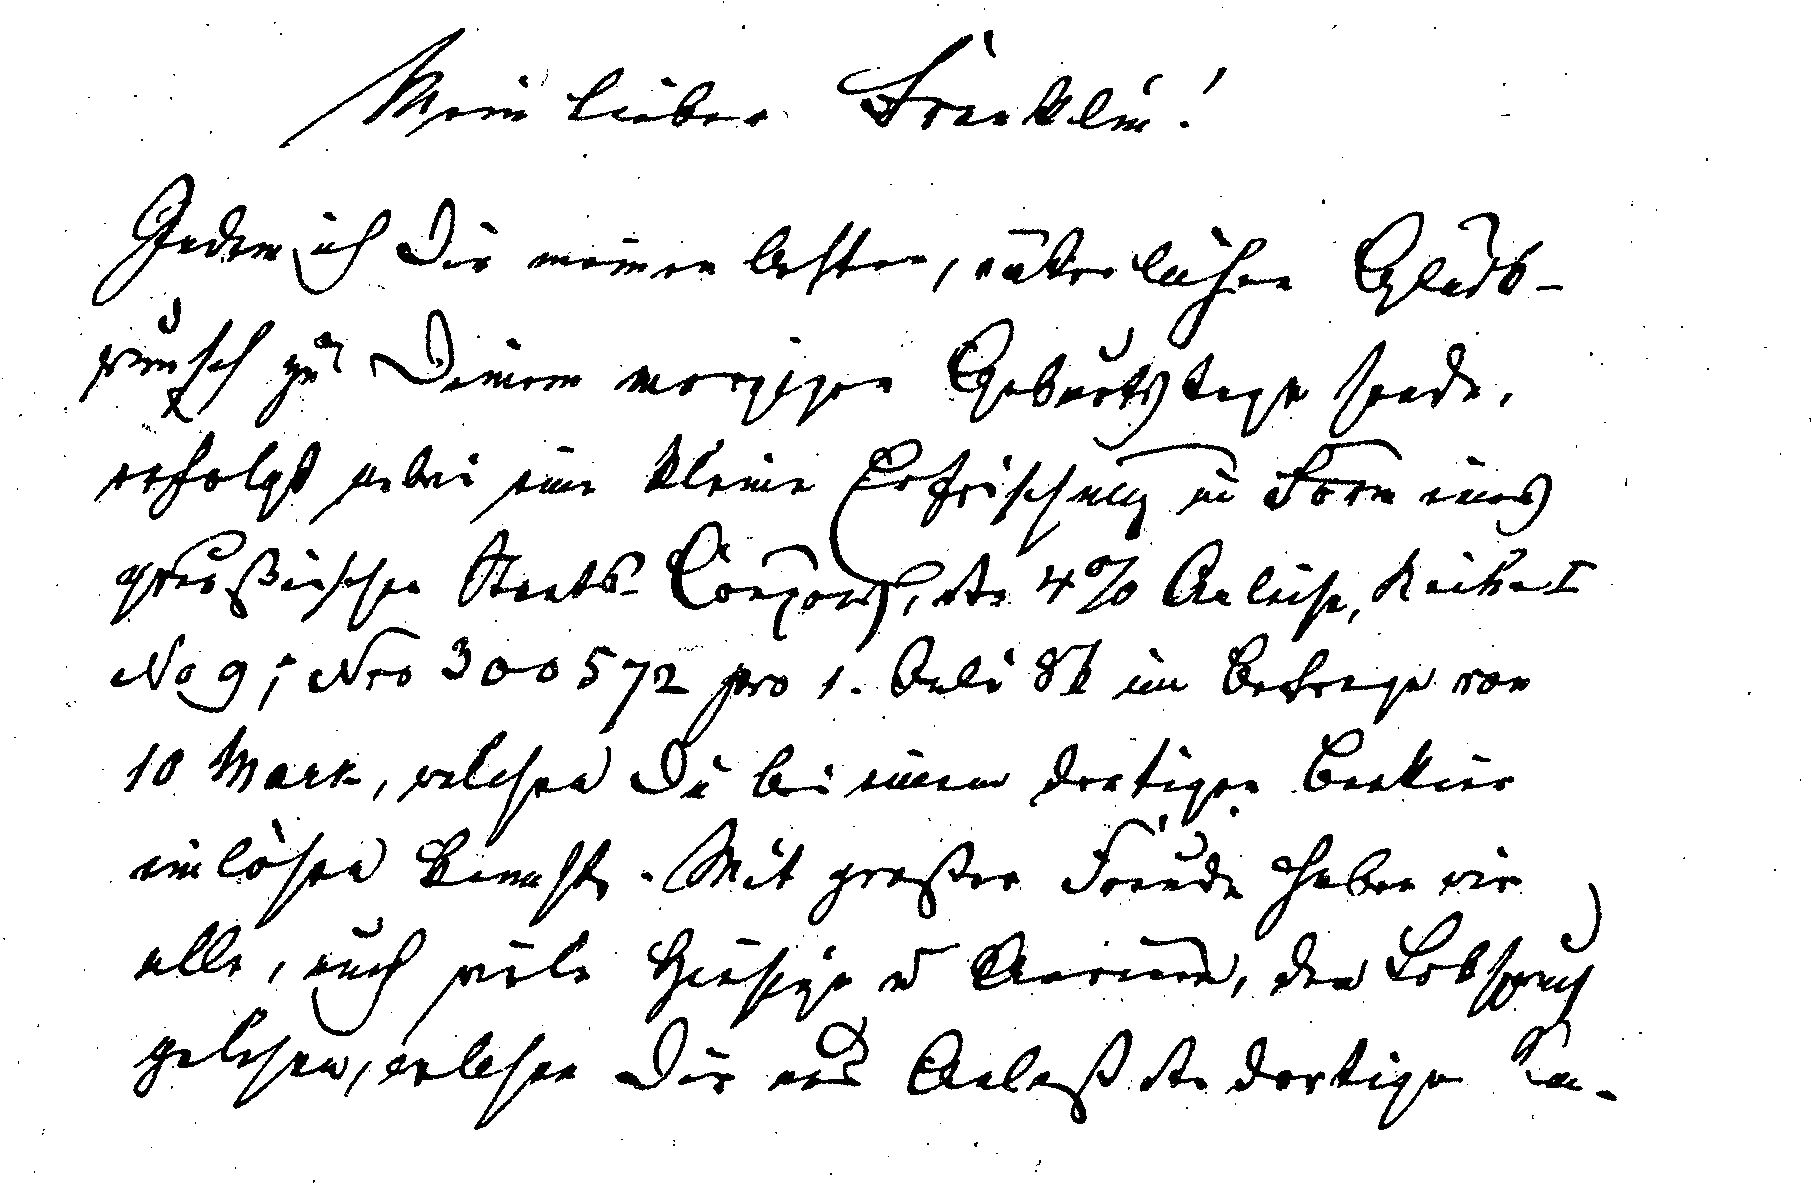 Mein lieber Franklin!
Indem ich Dir meinen besten, väterlichen Glück-
wunsch zu Deinem morgigen Geburtstage sende,
erfolgt nebei eine kleine Erfrischung in Form eines
preußischen Staats-Coupons, der 4% Anleihe, Reihe I
No 9; Nro 300572 pro 1. Juli im Betrage von
10 Mark, welchen Du bei einem dortigen Bankier
einlösen kannst. Mit großer Freude haben wir
alle, auch viele Hiesige u den Lobspruch
gelesen, welchen Dir aus Anlaß der dortigen